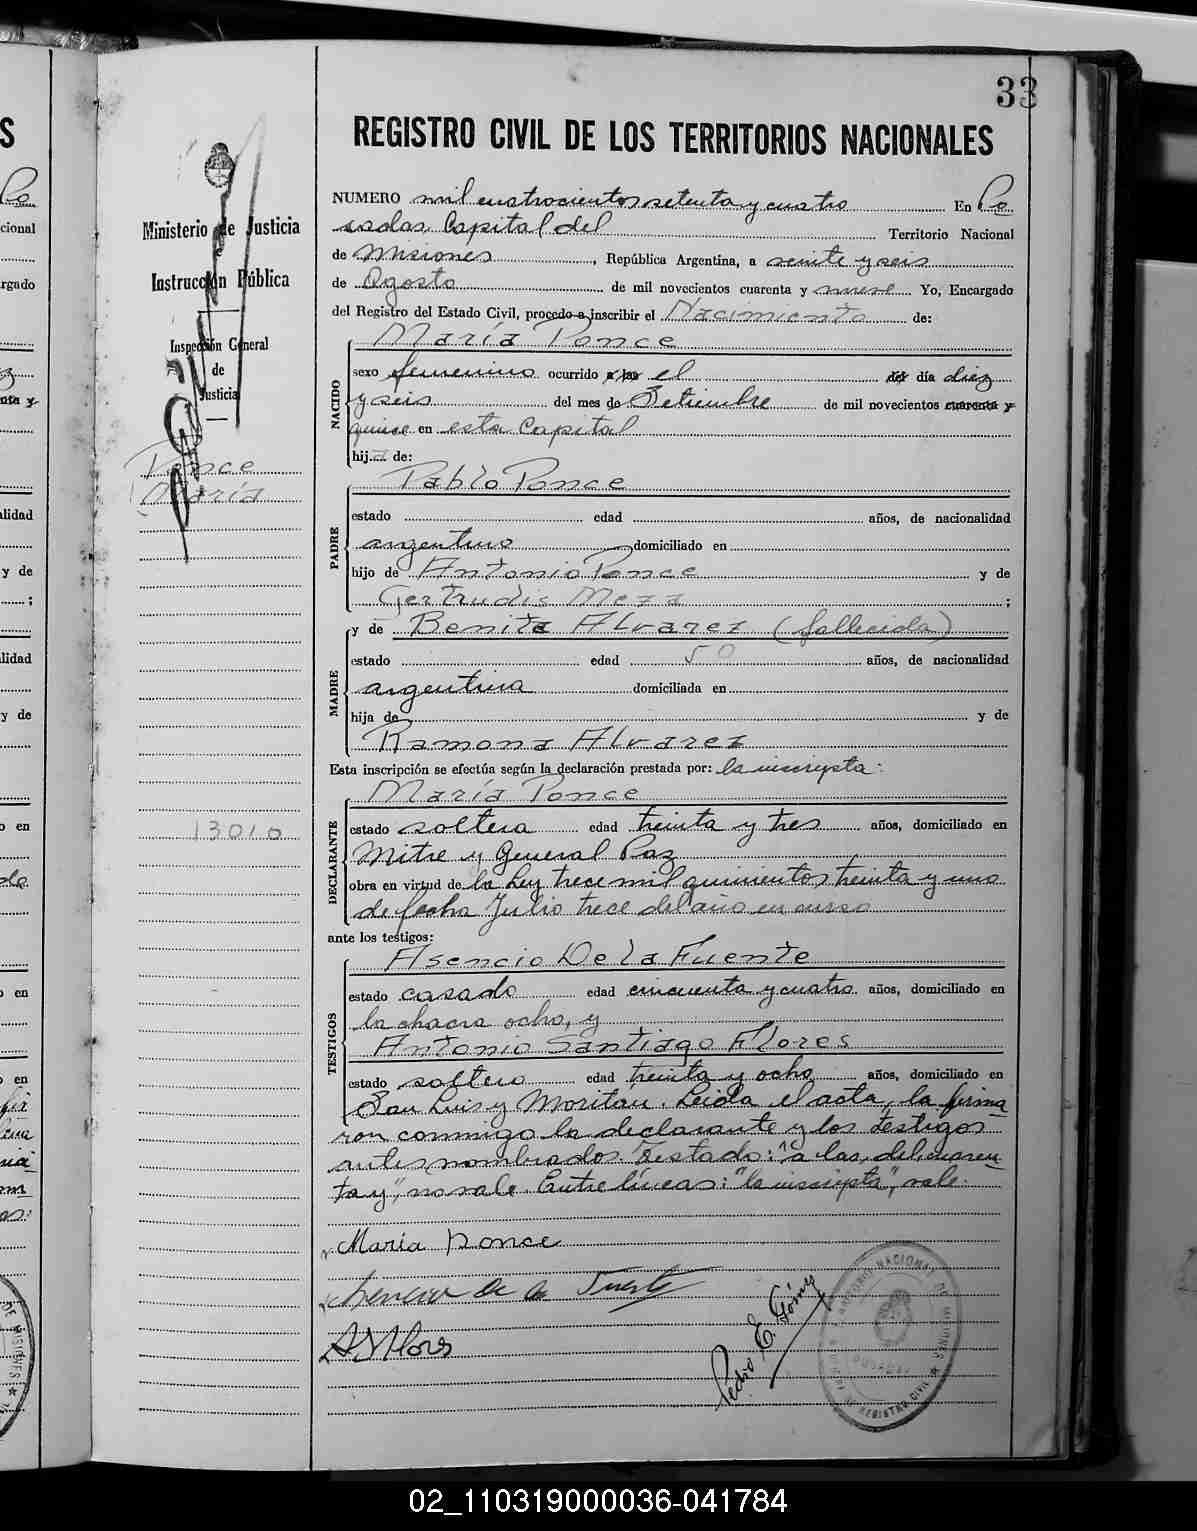 33
REGISTRO CIVIL DE LOS TERRITORIOS NACIONALES
Ministerio de Justicia
Instrucción Pública
Inspección General
de
Justicia
Ponce
María
13010
NUMERO mil cuatrocientos setenta y cuatro En Po
sadas Capital del Territorio Nacional
de Misiones, República Argentina, a veinte y seis
de Agosto de mil novecientos cuarenta y nueve Yo, Encargado
del Registro del Estado Civil, procedo a inscribir el Nacimiento de:
NACIDO
María Ponce
sexo femenino ocurrido a las el del día diez
y seis del mes de Setiembre de mil novecientos cuarenta y
quince en esta Capital
hija de:
PADRE
Pablo Ponce
estado edad años, de nacionalidad
argentino domiciliado en
hijo de Antonio Ponce y de
Gertrudis Meza ;
MADRE
y de Benita Alvarez (fallecida)
estado edad 50 años, de nacionalidad
argentina domiciliada en
hija de y de
Ramona Alvarez
Esta inscripción se efectúa según la declaración prestada por: la inscripta:
DECLARANTE
María Ponce
estado soltera edad treinta y tres años, domiciliado en
Mitre y General Paz
obra en virtud de la Ley trece mil quinientos treinta y uno
de fecha Julio trece del año en curso
ante los testigos:
TESTIGOS
Asencio De la Fuente
estado casado edad cincuenta y cuatro años, domiciliado en
la chacra ocho, y
Antonio Santiago Flores
estado soltero edad treinta y ocho años, domiciliado en
San Luis y Moritán. Leída el acta, la firma
ron conmigo la declarante y los testigos
antes nombrados. Testado: "a las, del, cuaren-
ta y", no vale. Entre líneas: "la inscripta", vale.
María Ponce
de la Fuente
Pedro E. Gómez
02_110319000036-041784